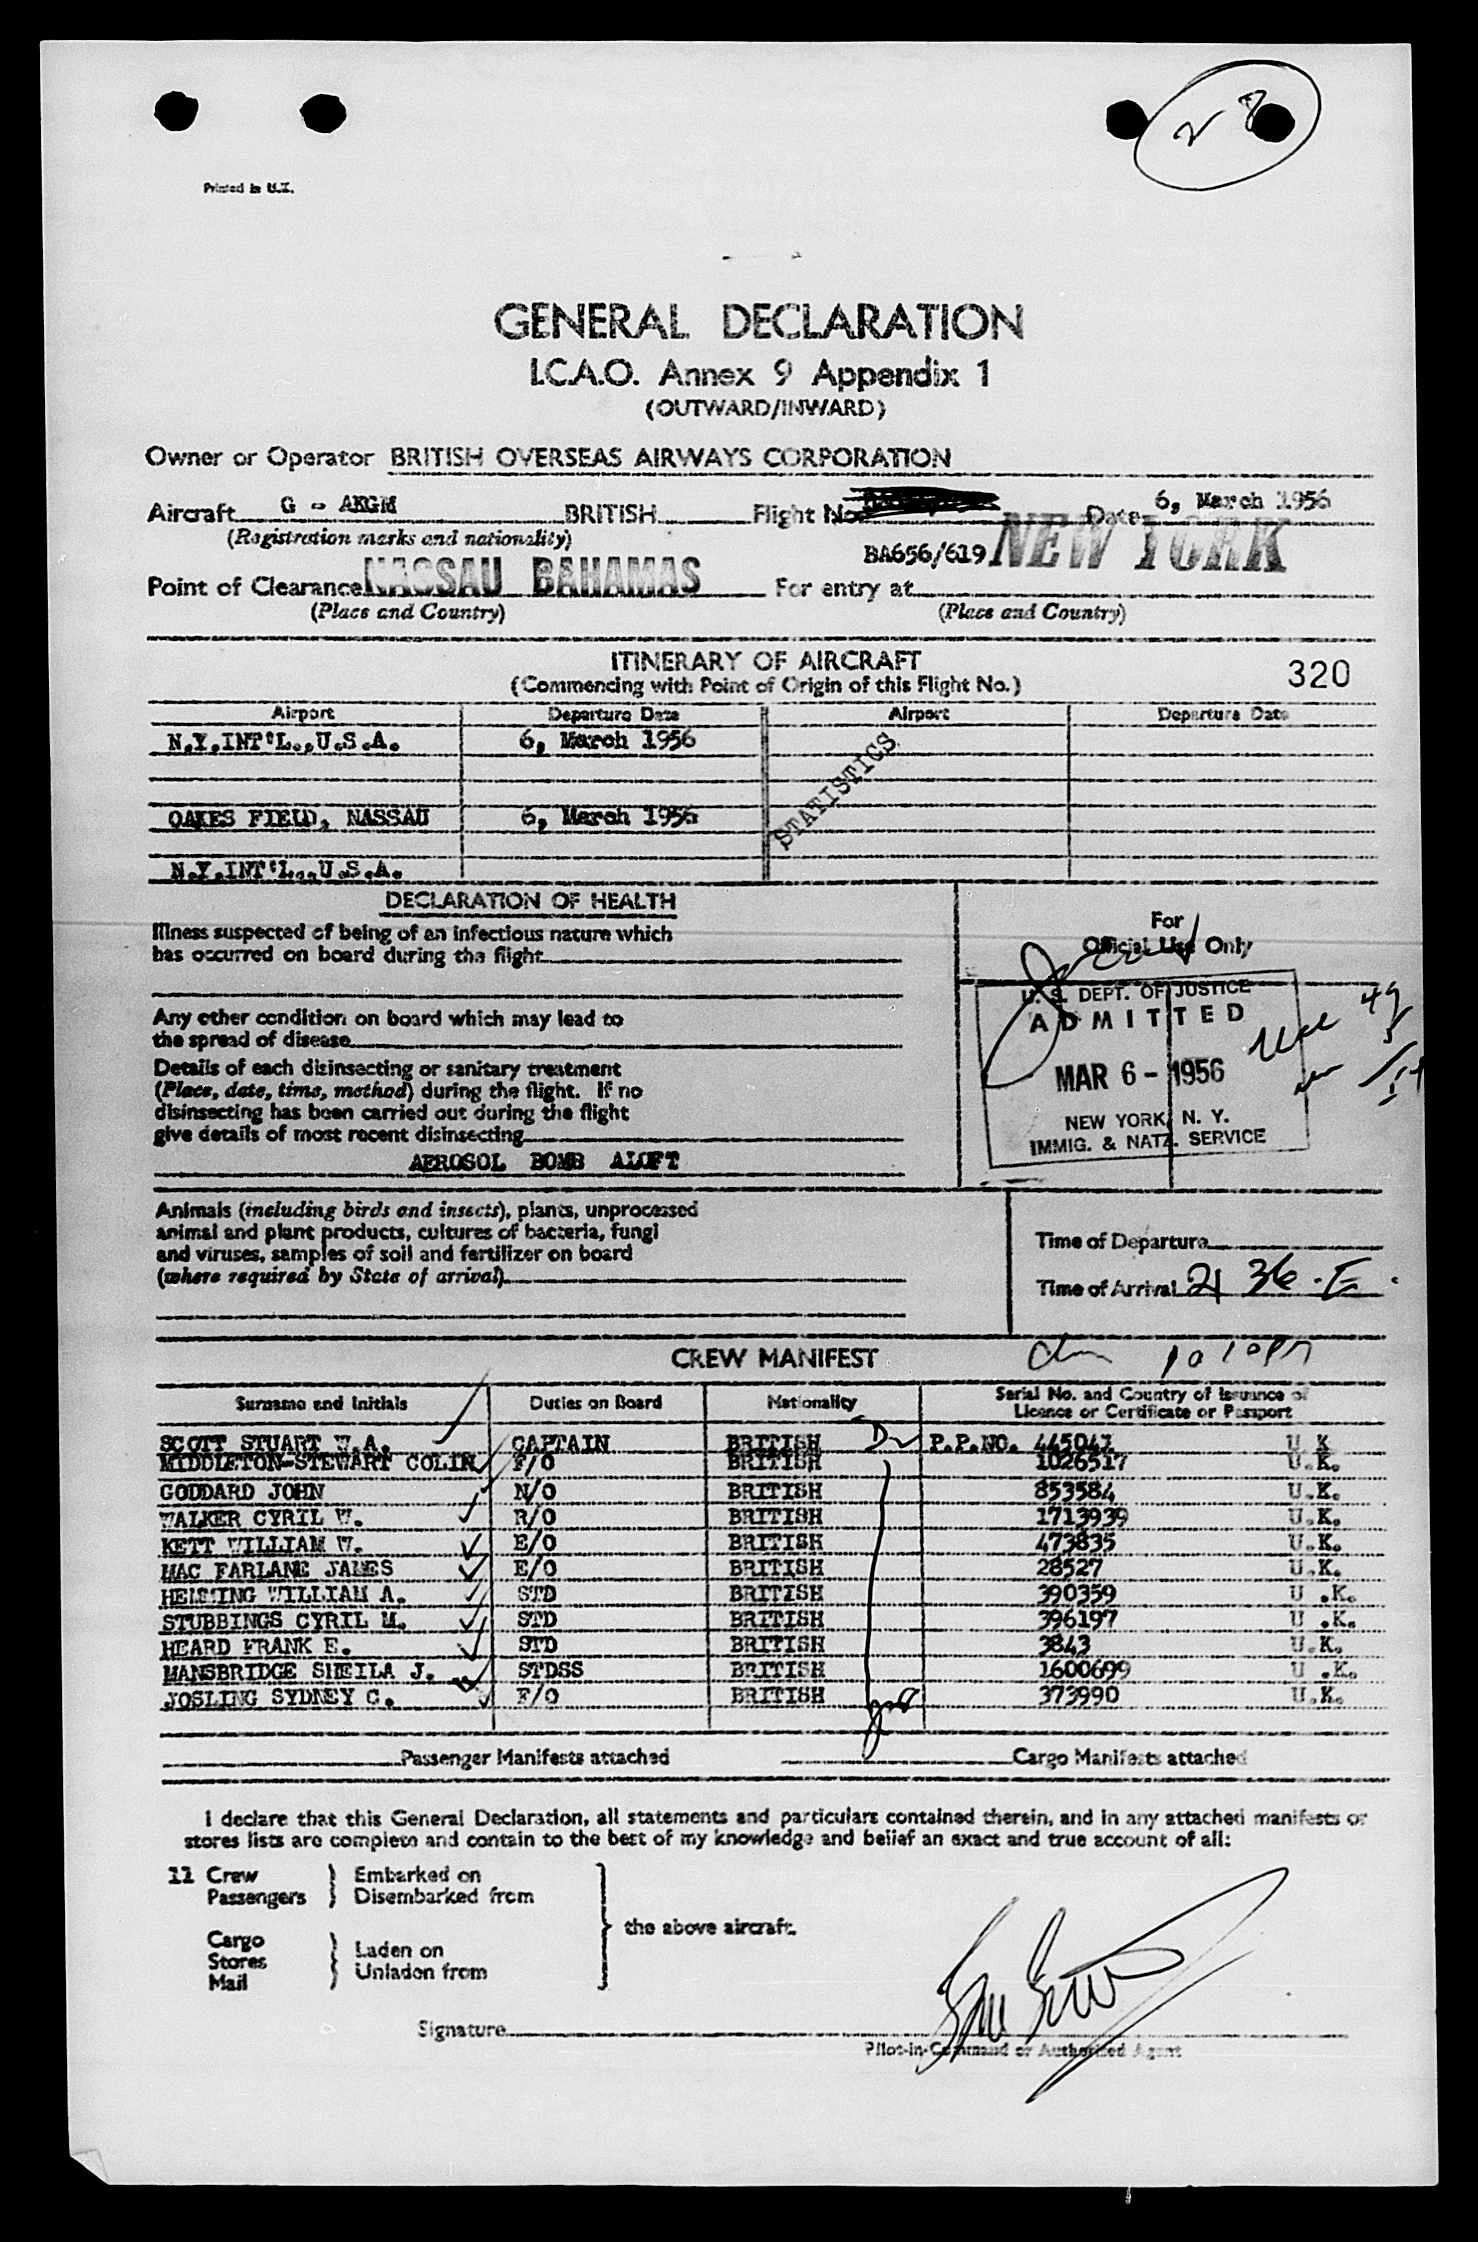 28
Printed in U.K.
GENERAL DECLARATION
I.C.A.O. Annex 9 Appendix 1
(OUTWARD/INWARD)
Owner or Operator BRITISH OVERSEAS AIRWAYS CORPORATION
Aircraft G - AKGM BRITISH Flight No. Date 6, March 1956
(Registration marks and nationality) BA656/619 NEW YORK
Point of Clearance NASSAU BAHAMAS For entry at
(Place and Country) (Place and Country)
ITINERARY OF AIRCRAFT
(Commencing with Point of Origin of this Flight No.) 320
Airport Departure Date Airport Departure Date
N.Y.INT'L.,U.S.A. 6, March 1956
STATISTICS
OAKES FIELD, NASSAU 6, March 1956
N.Y.INT'L.,U.S.A.
DECLARATION OF HEALTH
Illness suspected of being of an infectious nature which
has occurred on board during the flight
Any other condition on board which may lead to
the spread of disease
Details of each disinsecting or sanitary treatment
(Place, date, time, method) during the flight. If no
disinsecting has been carried out during the flight
give details of most recent disinsecting
AEROSOL BOMB ALOFT
For
Official Use Only
U. S. DEPT. OF JUSTICE
ADMITTED
MAR 6 - 1956
NEW YORK, N. Y.
IMMIG. & NATZ. SERVICE
Animals (including birds and insects), plants, unprocessed
animal and plant products, cultures of bacteria, fungi
and viruses, samples of soil and fertilizer on board
(where required by State of arrival)
Time of Departure
Time of Arrival 21 36 . E .
CREW MANIFEST
Surname and Initials Duties on Board Nationality Serial No. and Country of Issuance of
Licence or Certificate or Passport
SCOTT STUART W.A. CAPTAIN BRITISH P.P.NO. 445047 U K
MIDDLETON-STEWART COLIN F/O BRITISH 1026517 U.K.
GODDARD JOHN N/O BRITISH 853584 U.K.
WALKER CYRIL W. R/O BRITISH 1713939 U.K.
KETT WILLIAM W. E/O BRITISH 473835 U.K.
MAC FARLANE JAMES E/O BRITISH 28527 U.K.
HEMMING WILLIAM A. STD BRITISH 390359 U .K.
STUBBINGS CYRIL M. STD BRITISH 396197 U .K.
HEARD FRANK E. STD BRITISH 3843 U.K.
MANSBRIDGE SHEILA J. STDSS BRITISH 1600699 U .K.
JOSLING SYDNEY C. F/O BRITISH 373990 U.K.
Passenger Manifests attached Cargo Manifests attached
I declare that this General Declaration, all statements and particulars contained therein, and in any attached manifests or
stores lists are complete and contain to the best of my knowledge and belief an exact and true account of all:
11 Crew Embarked on
Passengers Disembarked from
the above aircraft.
Cargo
Stores Laden on
Mail Unladen from
Signature
Pilot-in-Command or Authorised Agent